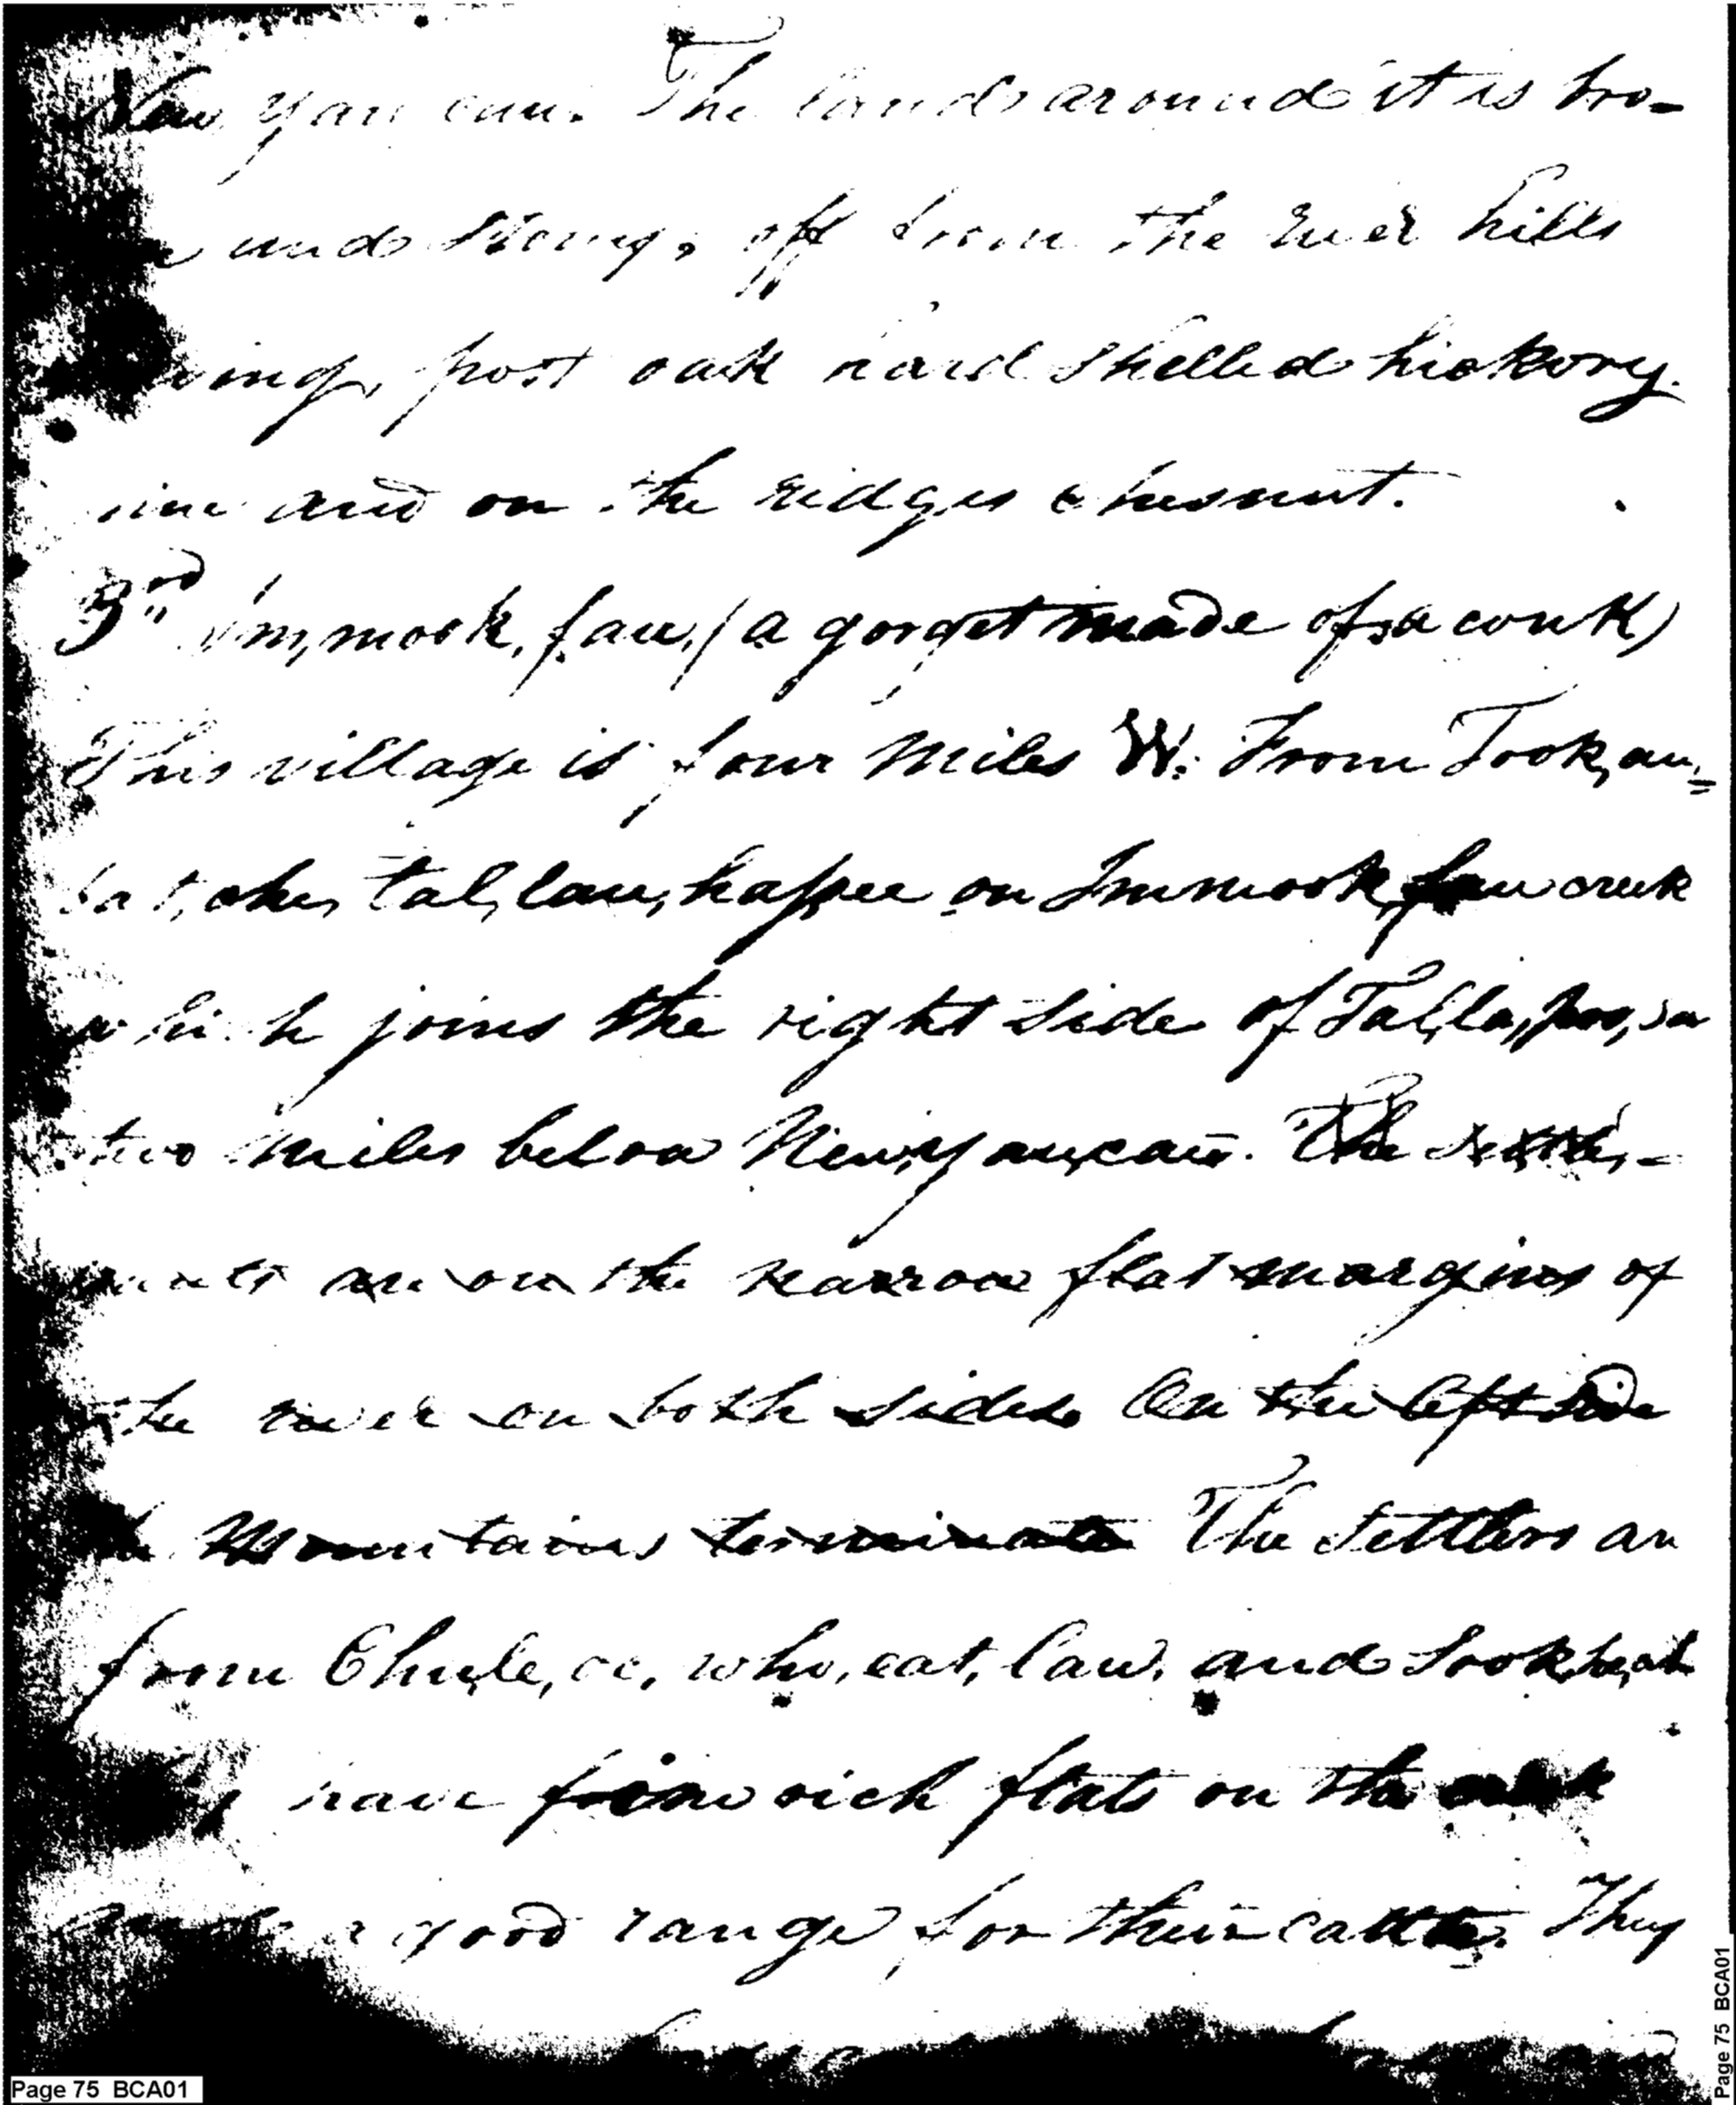 New, yau, cau. The lands around it is bro-
and stoney, off from the river hills
post oak hard shelled hickory.
and on the ridges chesnut.
3rd Im, mook, fau, (a gorget made of a conk)
This village is four miles W: From Took, au,=
bat, che, tal, lau, hassee on Immook, fau creek
which joins the right side of Tal, la, poo, sa
two miles below New, yau, cau. The settle,-
ments are on the narrow flat margins of
the river on both sides On the left side
Mountains terminate The settlers are
from Chule, oc, who, cat, lau, and
have fine rich flats on the creek
good range for their cattle. They
Page 75 BCA01
Page 75 BCA01